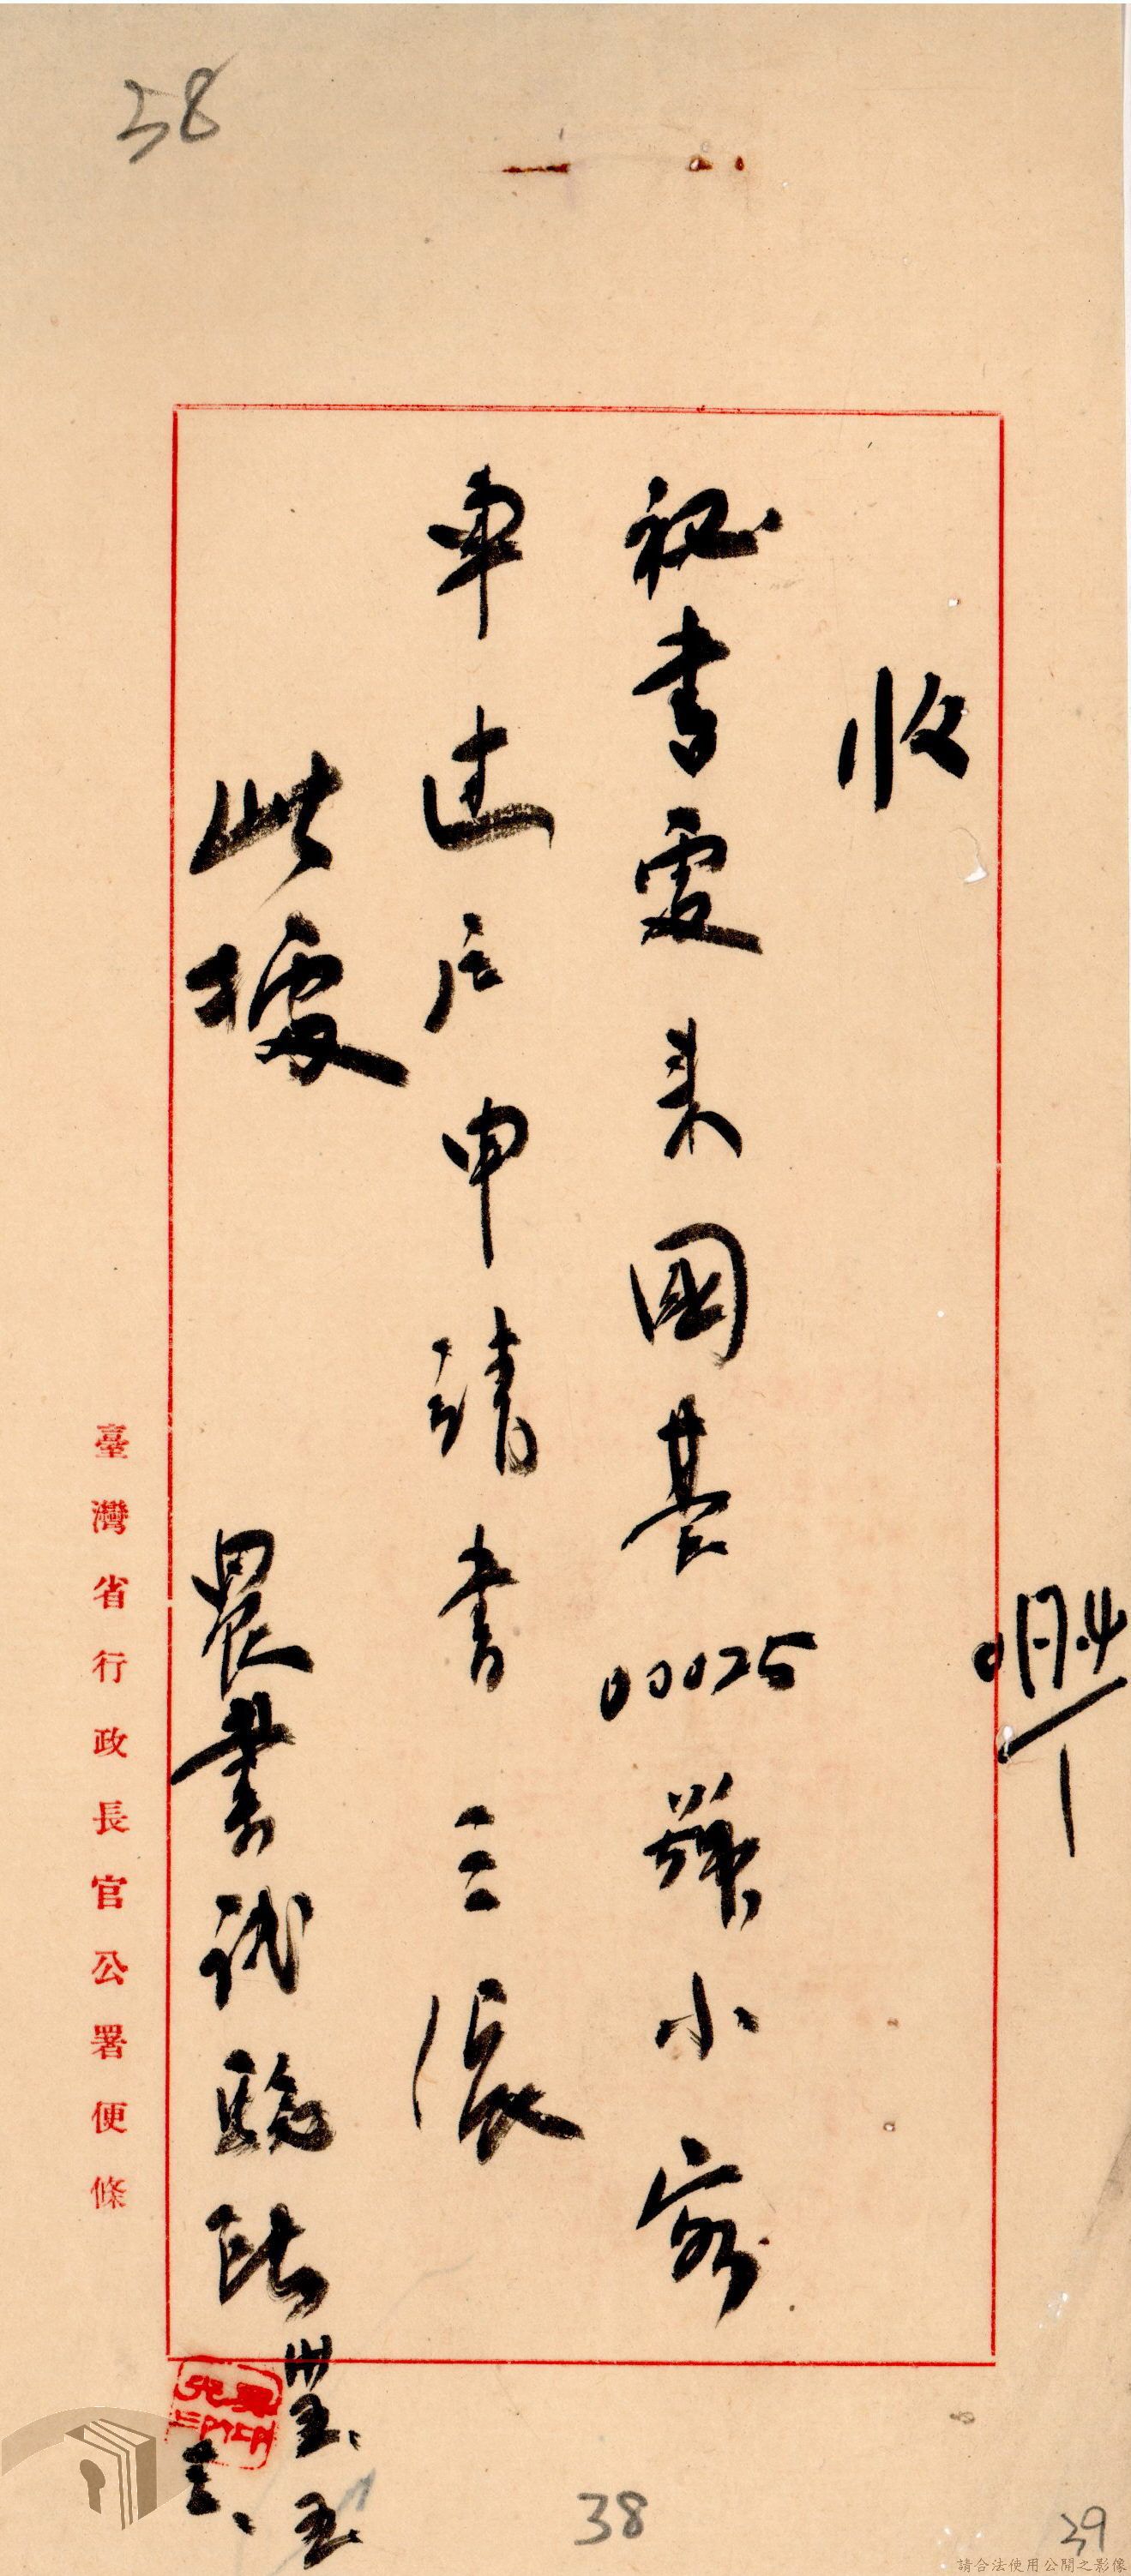 38
收
秘書處來國基00025號小客
車過户申請書三張
此據
農業試驗所
臺灣省行政長官公署便條
38
39
請合法使用公開之影像